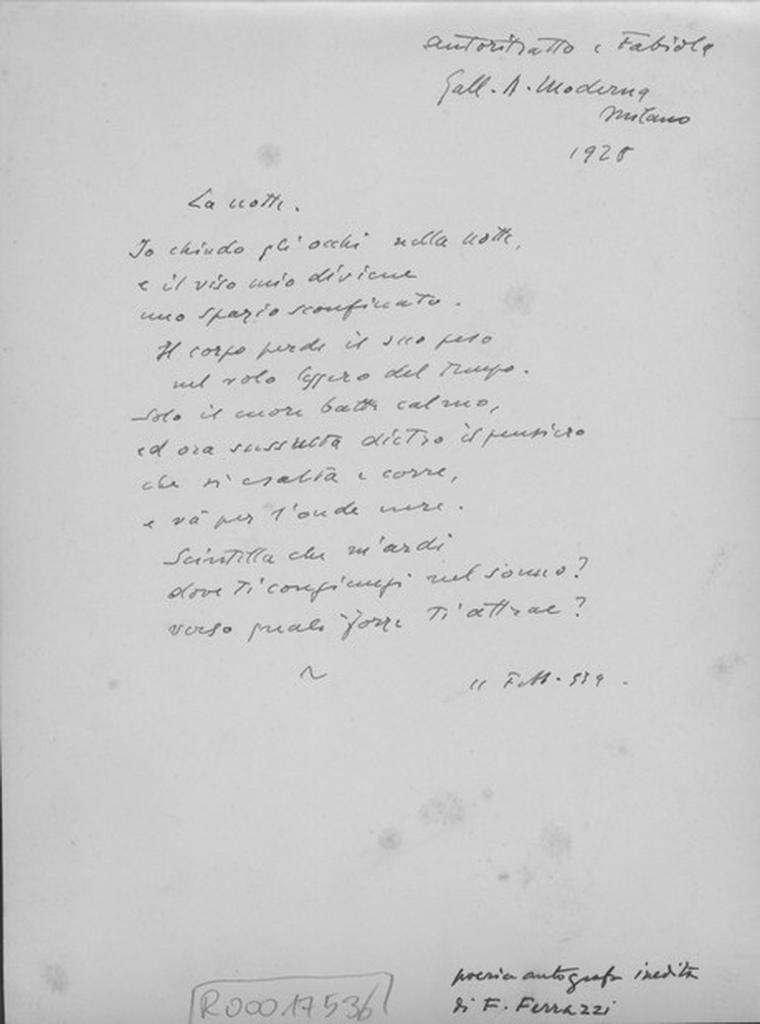 autoritratto e Fabiola
Gall. A. Moderna
Milano
1928
La notte.
Io chiudo gli occhi nella notte,
e il viso mio diviene
uno spazio sconfinato.
Il corpo perde il suo peso
nel volo leggero del tempo.
Solo il cuore batte calmo,
ed ora sussulta dietro il pensiero
che si esalta e corre,
e và per l'onde nere.
Scintilla che m'ardi
dove ti congiungi nel sonno?
verso quali forze ti attrae?
~
11 Febb. 939.
poesia autografa inedita
di F. Ferrazzi
R00017536